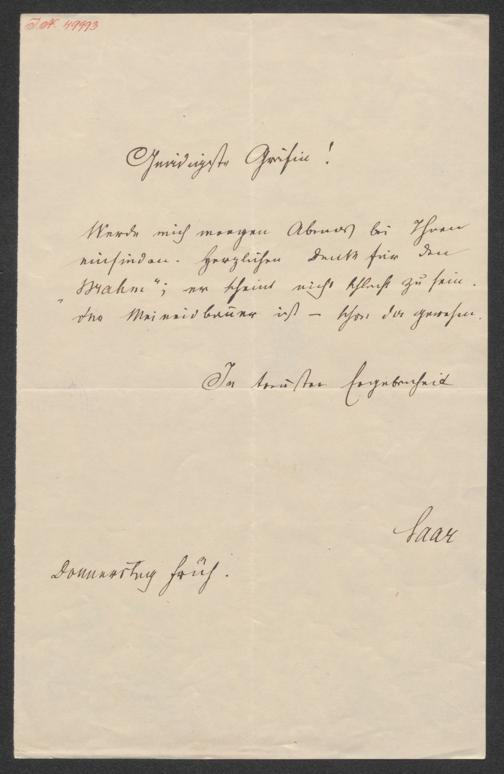 I.N. 49993
Gnädigste Gräfin!
Werde mich morgen Abends bei Ihnen
einfinden. Herzlichen Dank für den
"Brahm"; er scheint nicht schlecht zu sein.
Der Meineidbauer ist – schon da gewesen.
In treuster Ergebenheit
Saar
Donnerstag früh.